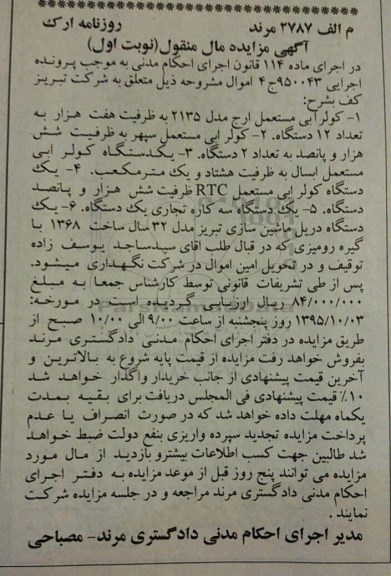 م الف ۲۷۸۷ مرند روزنامه ارک
آگهی مزایده مال منقول(نوبت اول)
در اجرای ماده ۱۱۴ قانون اجرای احکام مدنی به موجب پرونده
اجرایی ۹۵۰۰۴۳ج۴ اموال مشروحه ذیل متعلق به شرکت تبریز
کف بشرح:
۱- کولرآبی مستعمل ارج مدل ۲۱۳۵ به ظرفیت هفت هزار به
تعداد ۱۲ دستگاه. ۲- کولر ابی مستعمل سپهر به ظرفیت شش
هزار و پانصد به تعداد ۲ دستگاه. ۳- یکدستگاه کولر ابی
مستعمل ابسال به ظرفیت هشتاد و یک مترمکعب. ۴- یک
دستگاه کولر ابی مستعمل RTC ظرفیت شش هزار و پانصد
دستگاه. ۵- یک دستگاه سه کاره نجاری یک دستگاه. ۶- یک
دستگاه دریل ماشین سازی تبریز مدل ۳۲ سال ساخت ۱۳۶۸ با
گیره رومیزی که در قبال طلب اقای سیدساجد یوسف زاده
توقیف و در تحویل امین اموال در شرکت نگهداری میشود.
پس از طی تشریفات قانونی توسط کارشناس جمعا به مبلغ
۸۴/۰۰۰/۰۰۰ ریال ارزیابی گردیده است در مورخه:
۱۳۹۵/۱۰/۰۳ روز پنجشنبه از ساعت ۹/۰۰ الی ۱۰/۰۰ صبح از
طریق مزایده در دفتر اجرای احکام مدنی دادگستری مرند
بفروش خواهد رفت مزایده از قیمت پایه شروع به بالاترین و
آخرین قیمت پیشنهادی از جانب خریدار واگذار خواهد شد
۱۰٪ قیمت پیشنهادی فی المجلس دریافت برای بقیه بمدت
یکماه مهلت داده خواهد شد که در صورت انصراف یا عدم
پرداخت مزایده تجدید سپرده واریزی بنفع دولت ضبط خواهد
شد طالبین جهت کسب اطلاعات بیشترو بازدید از مال مورد
مزایده می توانند پنج روز قبل از موعد مزایده به دفتر اجرای
احکام مدنی دادگستری مرند مراجعه و در جلسه مزایده شرکت
نمایند.
مدیر اجرای احکام مدنی دادگستری مرند- مصباحی